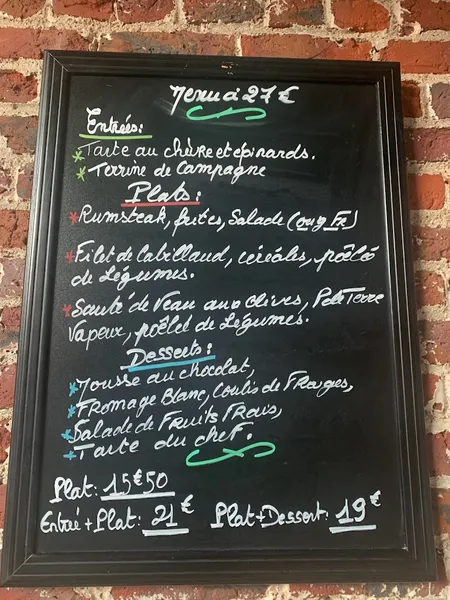 Menu à 27€
Entrées:
* Tarte au chèvre et épinards.
* Terrine de Campagne
Plats:
* Rumsteak, frites, Salade (
* Filet de Cabillaud, céréales, poêlé
de Légumes.
* Sauté de Veau aux olives, Terre
Vapeur, poêlée de Légumes.
Desserts:
* Mousse au chocolat,
* Fromage Blanc, Coulis de Fraises,
* Salade de Fruits Frais,
+ Tarte du chef.
Plat: 15€50
Entrée + Plat: 21€ Plat + Dessert: 19€